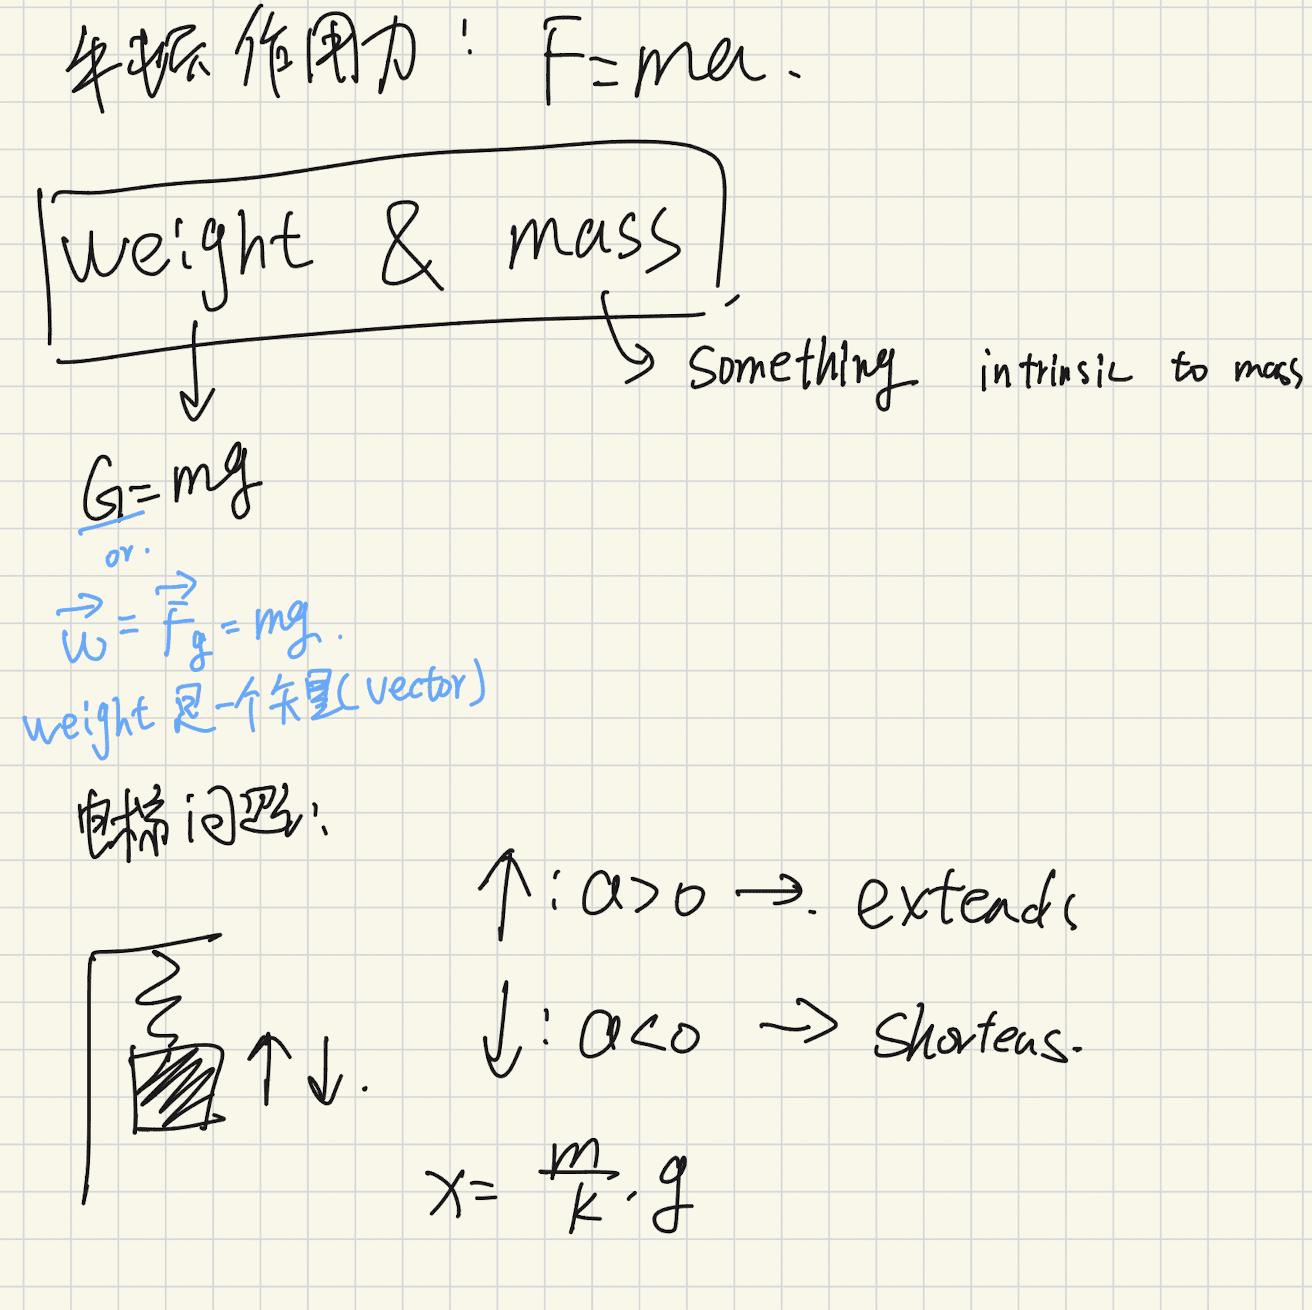 牛振作用力: F=ma.
weight & mass
Something intrinsic to mass
G=mg
or.
w⃗ = F⃗g = mg.
weight 是一个矢量(vector)
电梯问题:
↑: a>0 → extends
↓: a<0 → shortens.
↑ ↓.
x = m/k · g